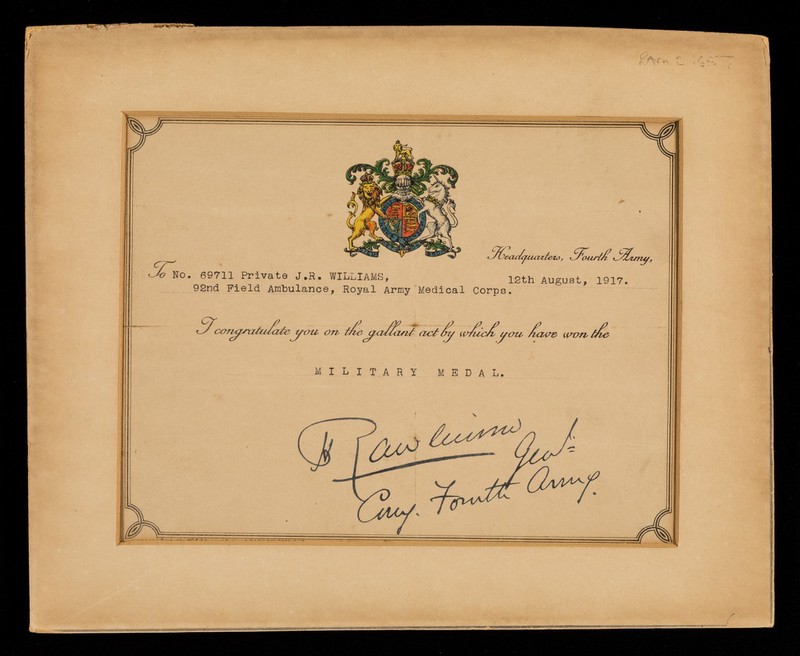 Headquarters, Fourth Army,
To No. 69711 Private J.R. WILLIAMS, 12th August, 1917.
92nd Field Ambulance, Royal Army Medical Corps.
I congratulate you on the gallant act by which you have won the
MILITARY MEDAL.
H Rawlinson Genl.
Comg. Fourth Army.